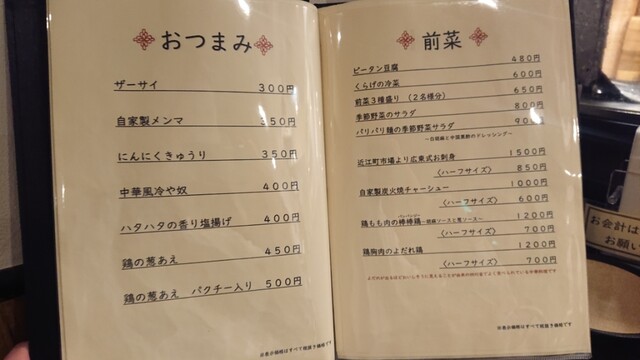 おつまみ
ザーサイ 300円
自家製メンマ 350円
にんにくきゅうり 350円
中華風冷や奴 400円
ハタハタの香り塩揚げ 400円
鶏の葱あえ 450円
鶏の葱あえ パクチー入り 500円
※表示価格はすべて税抜き価格です
前菜
ピータン豆腐 480円
くらげの冷菜 600円
前菜3種盛り (2名様分) 650円
季節野菜のサラダ 800円
パリパリ麺の季節野菜サラダ 90
近江町市場より広東式お刺身 1500円
〈ハーフサイズ〉 850円
自家製炭火焼チャーシュー 1000円
〈ハーフサイズ〉 600円
鶏もも肉の棒棒鶏~胡麻ソースと葱ソース~ 1200円
〈ハーフサイズ〉 700円
鶏胸肉のよだれ鶏 1200円
〈ハーフサイズ〉 700円
※表示価格はすべて税抜き価格です
お会計は
お願い